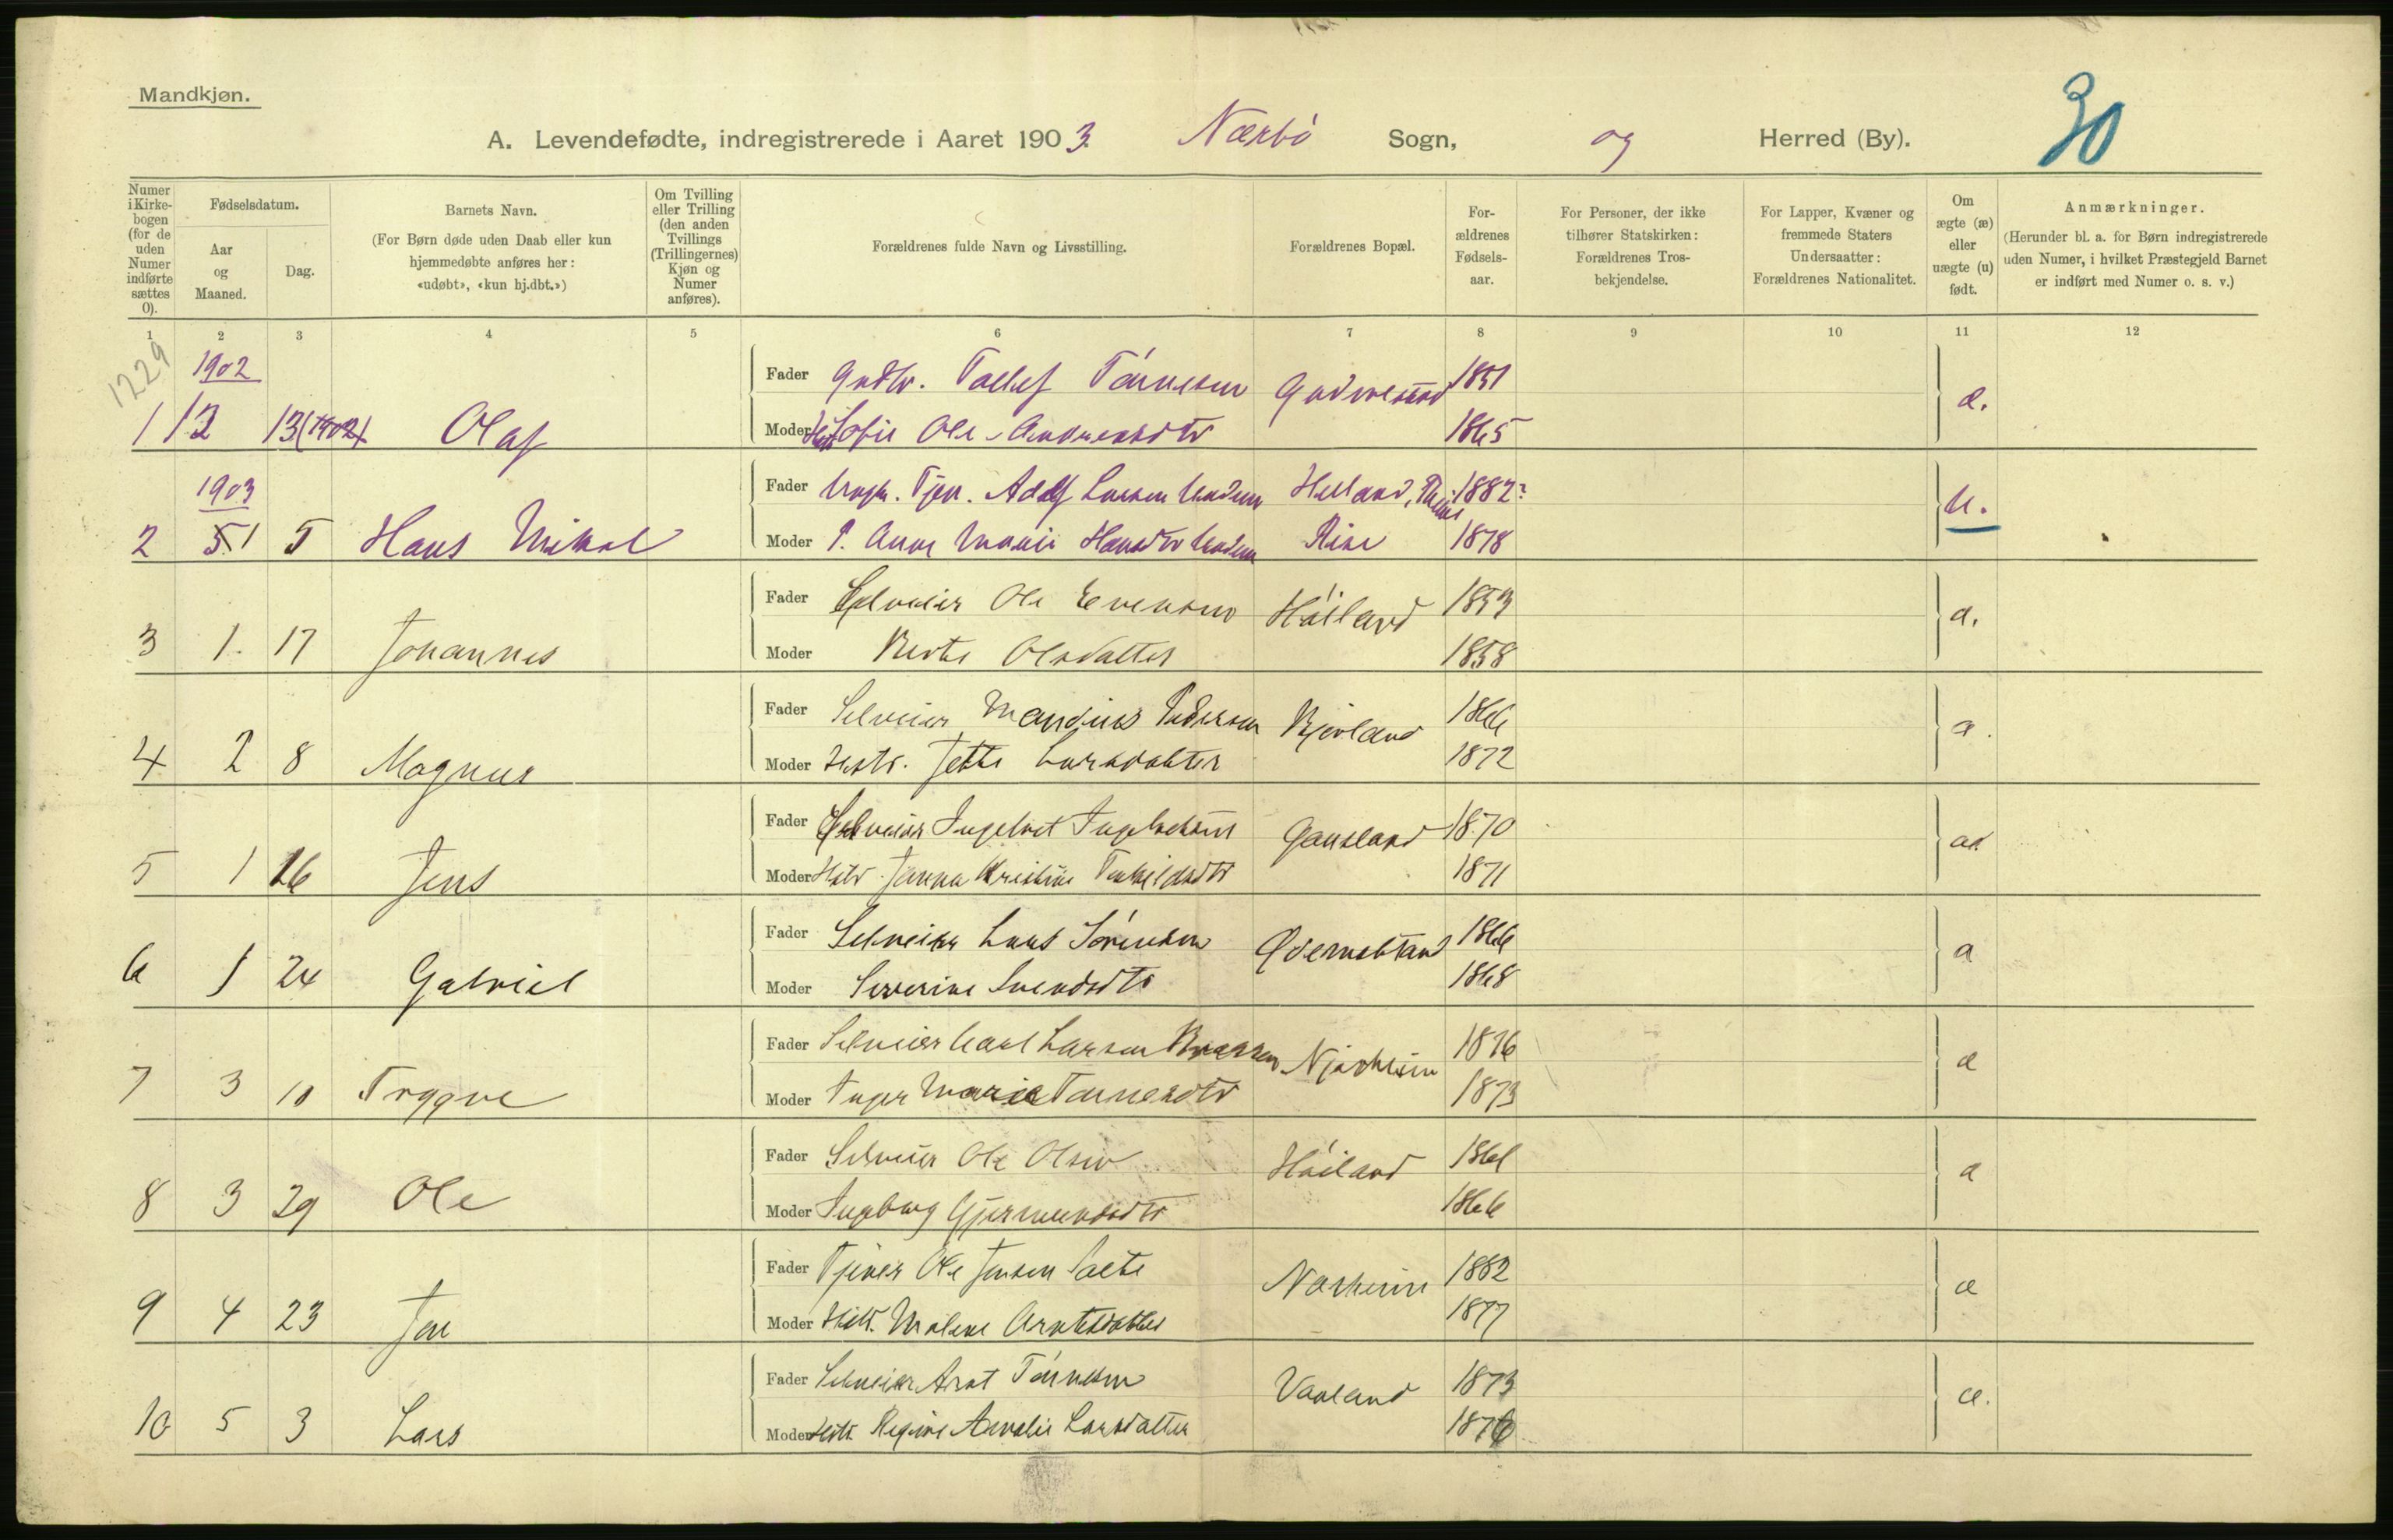 Mandkjøn.
30
A. Levendefødte, indregistrerede i Aaret 1903. Nærbö Sogn, og Herred (By).
Numer i Kirkebogen (for de uden Numer indførte sættes 0).
Fødselsdatum.
Aar og Maaned.
Dag.
Barnets Navn.
(For Børn døde uden Daab eller kun hjemmedøbte anføres her: «udøbt», «kun hj.dbt.»)
Om Tvilling eller Trilling (den anden Tvillings (Trillingernes) Kjøn og Numer anføres).
Forældrenes fulde Navn og Livsstilling.
Forældrenes Bopæl.
Forældrenes Fødselsaar.
For Personer, der ikke tilhører Statskirken: Forældrenes Trosbekjendelse.
For Lapper, Kvæner og fremmede Staters Undersaatter: Forældrenes Nationalitet.
Om ægte (æ) eller uægte (u) født.
Anmærkninger.
(Herunder bl. a. for Børn indregistrerede uden Numer, i hvilket Præstegjeld Barnet er indført med Numer o. s. v.)
1 2 3 4 5 6 7 8 9 10 11 12
1229
1902
Fader Tollef Tönnesen 1851
1 12 13 (1902) Olaf æ.
Moder Sofie Ole-Andreasdtr 1865
1903
Fader Tjen. Adolf Larsen Helland, 1882?
2 1 5 Hans Mikal u.
Moder Anne Marie Hansdtr Rise 1878
Fader Selveier Ole Evensen Höiland 1853
3 1. 17 Johannes æ.
Moder Berte Olsdatter 1858
Fader Selveier Mandius Pedersen Bjorland 1866
4 2 8 Magnus æ.
Moder Hustr. Jette Larsdatter 1872
Fader Selveier Ingebret Ingebretsen Gausland 1870
5 1 16 Jens æ.
Moder Hstr. Janna Kristine 1871
Fader Selveier Lars Sörensen 1866
6 1 24 Gabriel æ
Moder Severine Svendsdtr 1868
Fader Selveier Carl Larsen Njærheim 1876
7 3 10 Trygve æ
Moder Inger Marie Tönnesdtr 1873
Fader Selveier Ole Olsen Höiland 1861
8 3 29 Ole æ
Moder Ingeborg Gjermundsdtr 1866
Fader Tjener Ole Jensen 1882
9 4 23 Jon æ
Moder Hstr. Malene Arntsdatter 1877
Fader Selveier Arnt Tönnesen Vaaland 1873
10 5 3 Lars æ.
Moder Hstr. Regine Amalie Larsdatter 1876